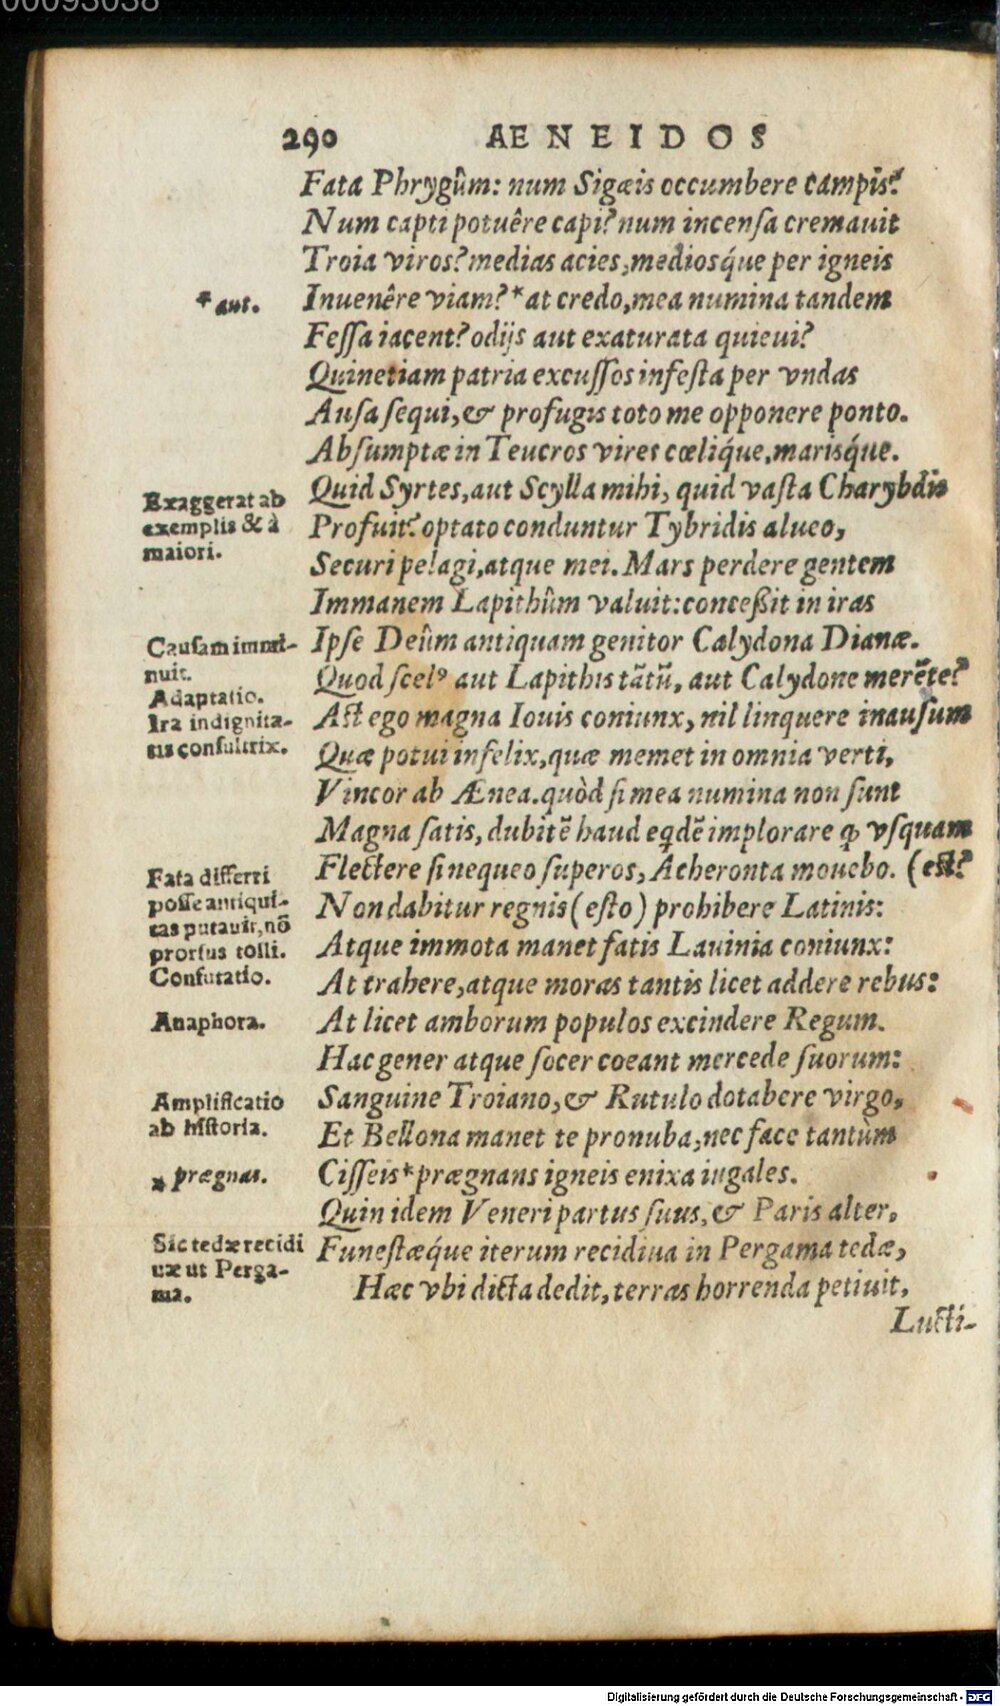 00093038
290 AENEIDOS
Fata Phrygûm: num Sigæis occumbere campis?
Num capti potuêre capi? num incenſa cremauit
Troia viros? medias acies, mediosq́ue per igneis
* aut.
Inuenêre viam? * at credo, mea numina tandem
Feſſa iacent? odijs aut exaturata quieui?
Quinetiam patria excuſſos infeſta per vndas
Auſa ſequi, & profugis toto me opponere ponto.
Abſumptæ in Teucros vires cœliq́ue, marisq́ue.
Exaggerat ab
exemplis & à
maiori.
Quid Syrtes, aut Scylla mihi, quid vaſta Charybdis
Profuit? optato conduntur Tybridis alueo,
Securi pelagi, atque mei. Mars perdere gentem
Immanem Lapithûm valuit: conceßit in iras
Cauſam immi-
nuit.
Adaptatio.
Ira indignita-
tis conſultrix.
Ipſe Deûm antiquam genitor Calydona Dianæ.
Quod ſcelꝰ aut Lapithis tātū, aut Calydone merēte?
Aſt ego magna Iouis coniunx, nil linquere inauſum
Quæ potui infelix, quæ memet in omnia verti,
Vincor ab Ænea. quòd ſi mea numina non ſunt
Magna ſatis, dubitē haud eqdē implorare ꝙ vſquam
Fata differri
poſſe antiqui-
tas putauit, nō
prorſus tolli.
Confutatio.
Flectere ſi nequeo ſuperos, Acheronta mouebo. (eſt?
Non dabitur regnis (eſto) prohibere Latinis:
Atque immota manet fatis Lauinia coniunx:
At trahere, atque moras tantis licet addere rebus:
Anaphora.
At licet amborum populos excindere Regum.
Hac gener atque ſocer coeant mercede ſuorum:
Amplificatio
ab hiſtoria.
Sanguine Troiano, & Rutulo dotabere virgo,
Et Bellona manet te pronuba, nec face tantùm
* prægnas.
Ciſſeis * prægnans igneis enixa iugales.
Quin idem Veneri partus ſuus, & Paris alter,
Sic tedæ recidi
uæ ut Perga-
ma.
Funeſtæq́ue iterum recidiua in Pergama tedæ,
Hæc vbi dicta dedit, terras horrenda petiuit,
Lucti-
Digitalisierung gefördert durch die Deutsche Forschungsgemeinschaft - DFG